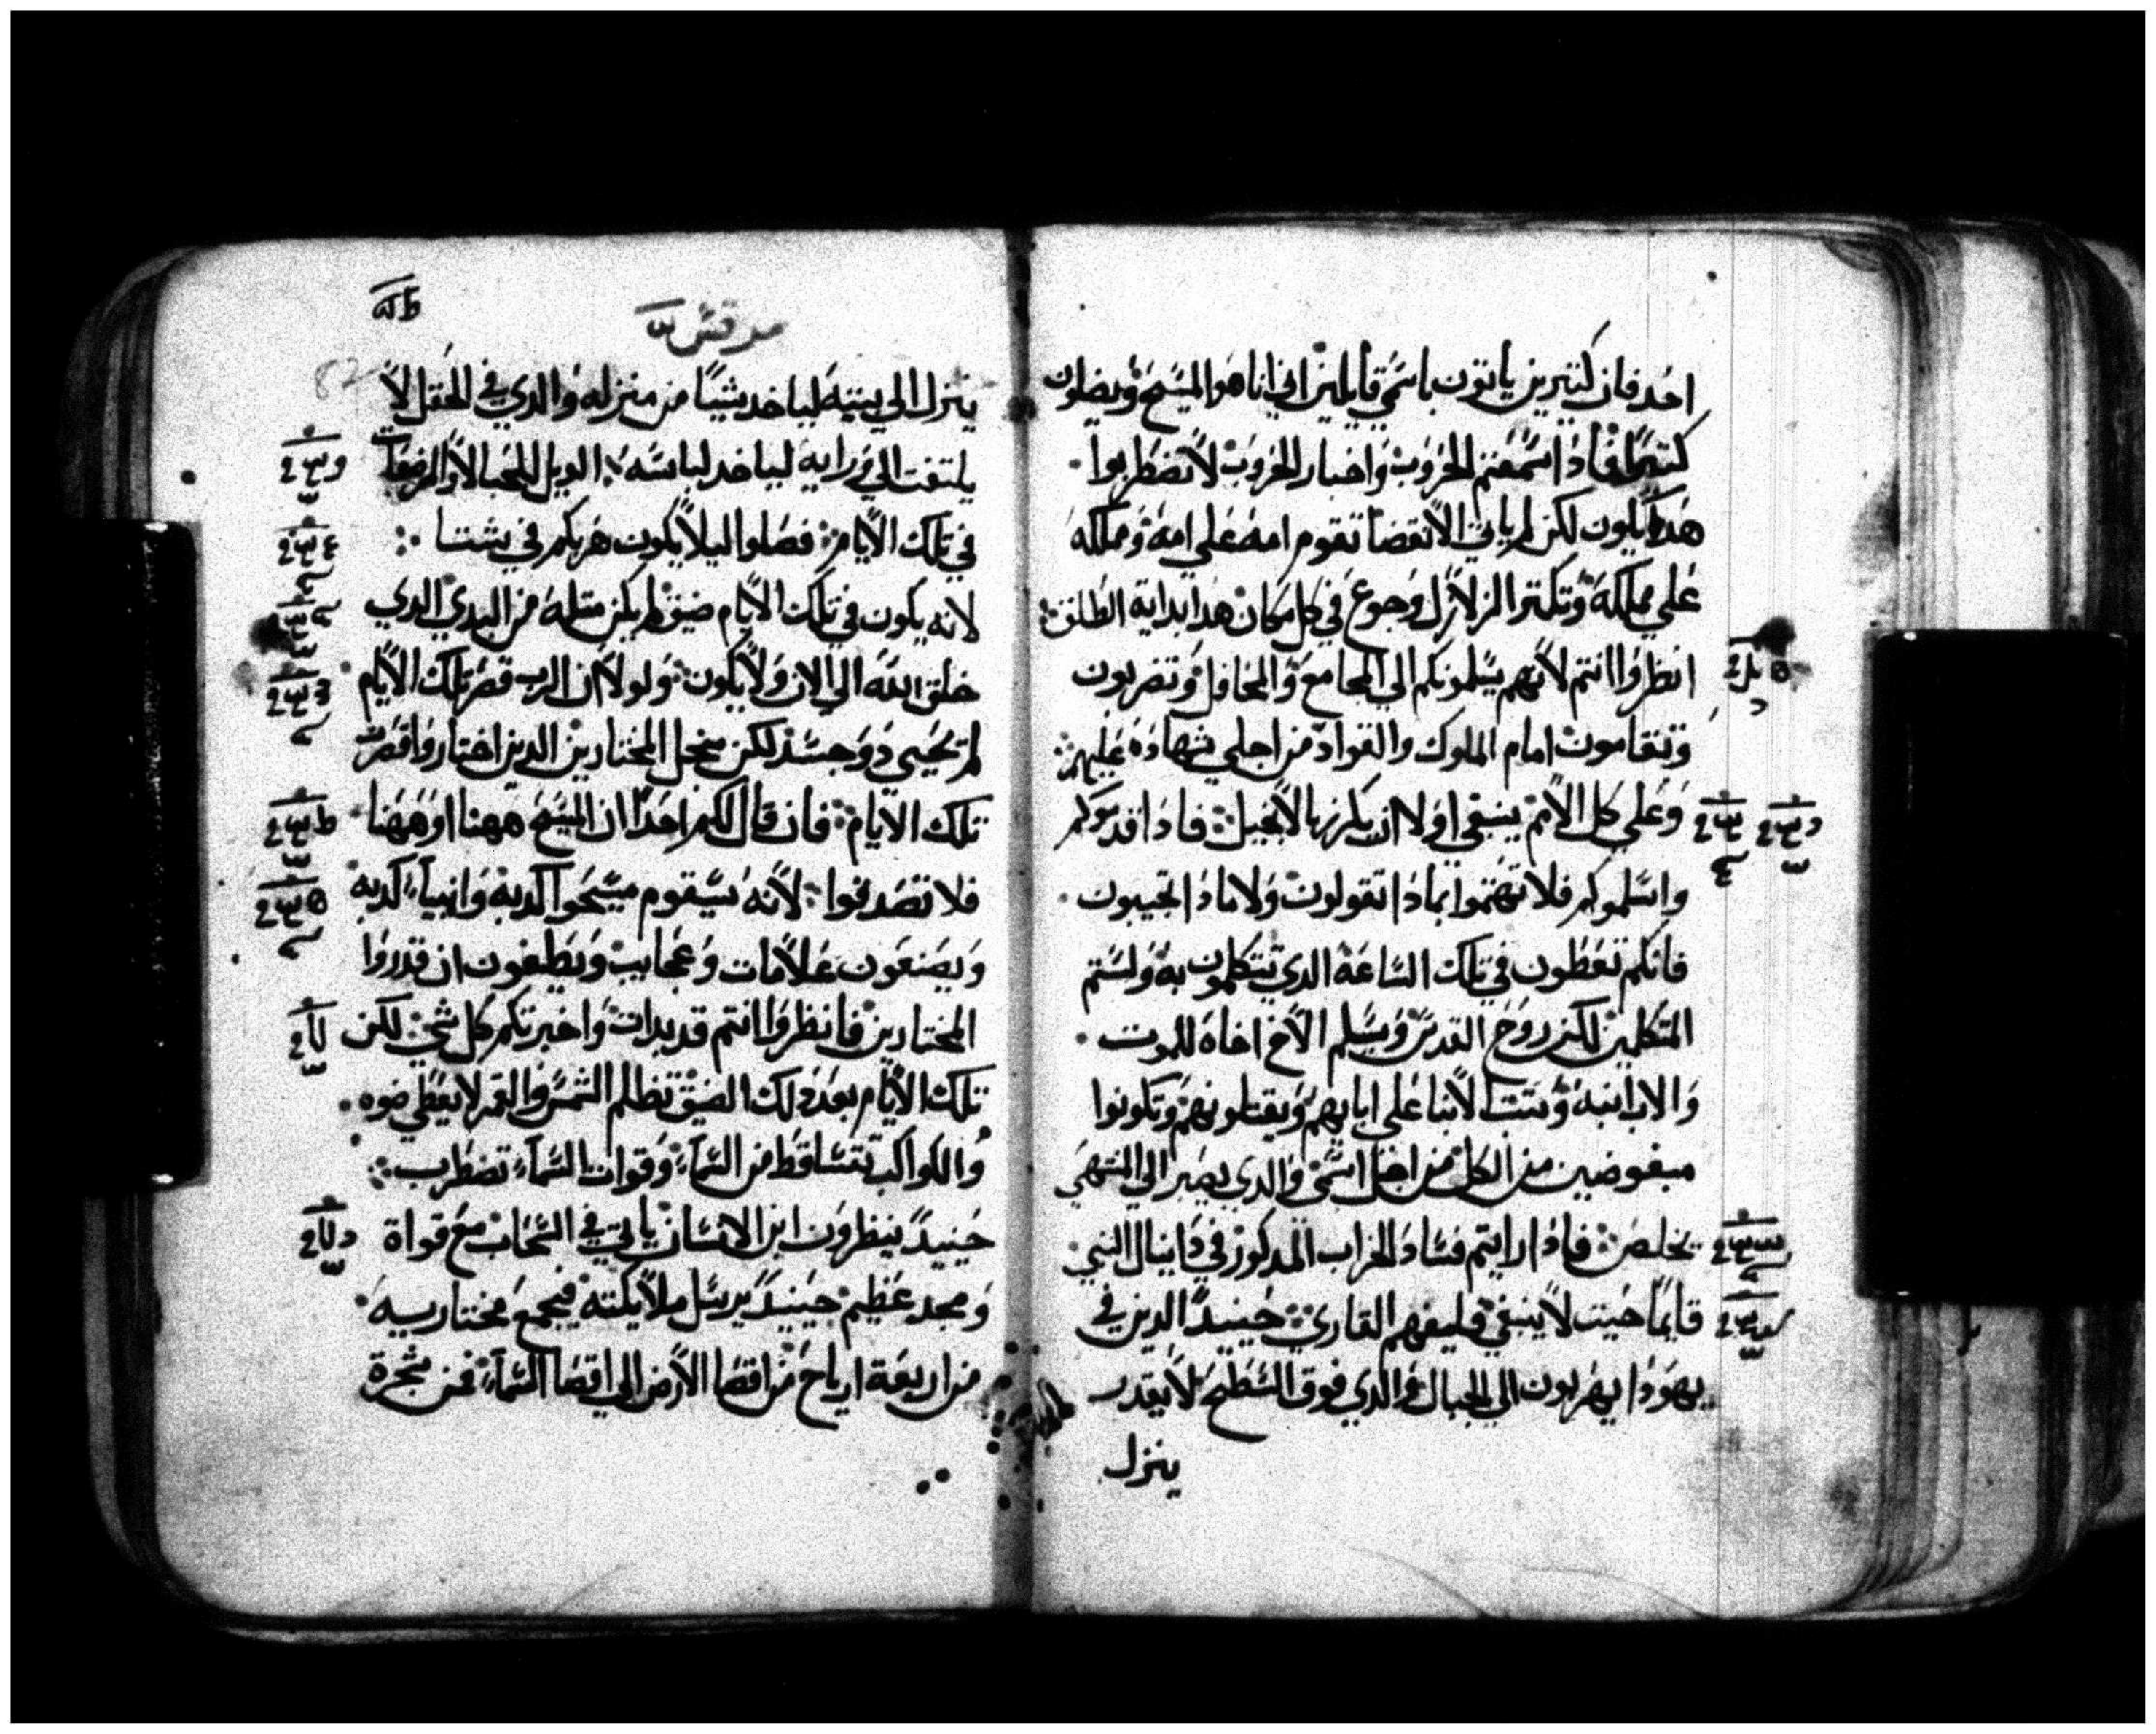 احد فان كتيرين ياتون باسمي قايلين اني انا هو المسيح ويضلون
كتيرا فادا سمعتم الحروب واخبار الحروب لا تضطربوا
هدا يكون لكن لم ياتي الانقضا تقوم امه علي امه ومملكه
علي مملكه وتكتر الزلازل وجوع في كل مكان هدا بداية الطلق
انظروا انتم لانهم يسلمونكم الي المجامع والمحافل وتضربون
وتقامون امام الملوك والقواد من اجلي شهاده عليهم
وعلي كل الامم ينبغي اولا ان يكرز بالانجيل فادا قدموكم
واسلموكم فلا تهتموا بمادا تقولون ولا مادا تجيبون
فانكم تعطون في تلك الساعة الدي تتكلمون به ولستم
المتكلمين لكن روح القدس ويسلم الاخ اخاه للموت
والاب ابنه وتتب الابنا علي ابايهم ويقتلونهم وتكونوا
مبغوضين من الكل من اجل اسمي والدي يصبر الي المنتهي
يخلص فادا رايتم فساد الخراب المدكور في دانيال النبي
قايما حيت لا ينبغي فليفهم القاري حينيدا الدين في
يهودا يهربون الي الجبال والدي فوق السطح لا يقدر
ينزل
مرقس
ينزل الي بيته لياخد شيا من منزله والدي في الحقل لا
يلتفت الي ورايه لياخد لباسه الويل للحبالا والمرضعات
في تلك الايام فصلوا ليلا يكون هربكم في شتا
لانه يكون في تلك الايام ضيق لم يكن متله من البدي الدي
خلق الله الي الان ولا يكون ولولا ان الرب قصر تلك الايام
لم يحيي دو جسد لكن من اجل المختارين الدين اختار واقصرت
تلك الايام فان قال لكم احدا ان المسيح ههنا او ههنا
فلا تصدقوا لانه سيقوم مسيحوا كدبه وانبياء كدبه
ويصنعون علامات وعجايب ويطغون ان قدروا
المختارين فانظروا انتم قد بدات واخبرتكم كل شي لكن
تلك الايام بعد دلك الضيق تظلم الشمس والقمر لا يعطي ضوه
والكواكب تتساقط من السماء وقوات السماء تضطرب
حينيد ينظرون ابن الانسان ياتي في السحاب مع قواة
ومجد عظيم حينيد يرسل ملايكته فيجمع مختاريه
من اربعة ارياح من اقصا الارض الي اقصا السماء فمن شجرة